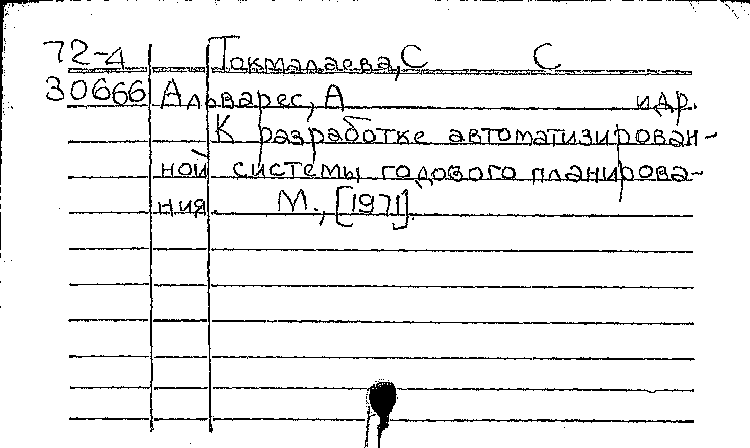 72-4 Токмалаева, С С
30666 Альварес, А и др.
К разработке автоматизирован-
ной системы годового планирова-
ния. М., [1971].